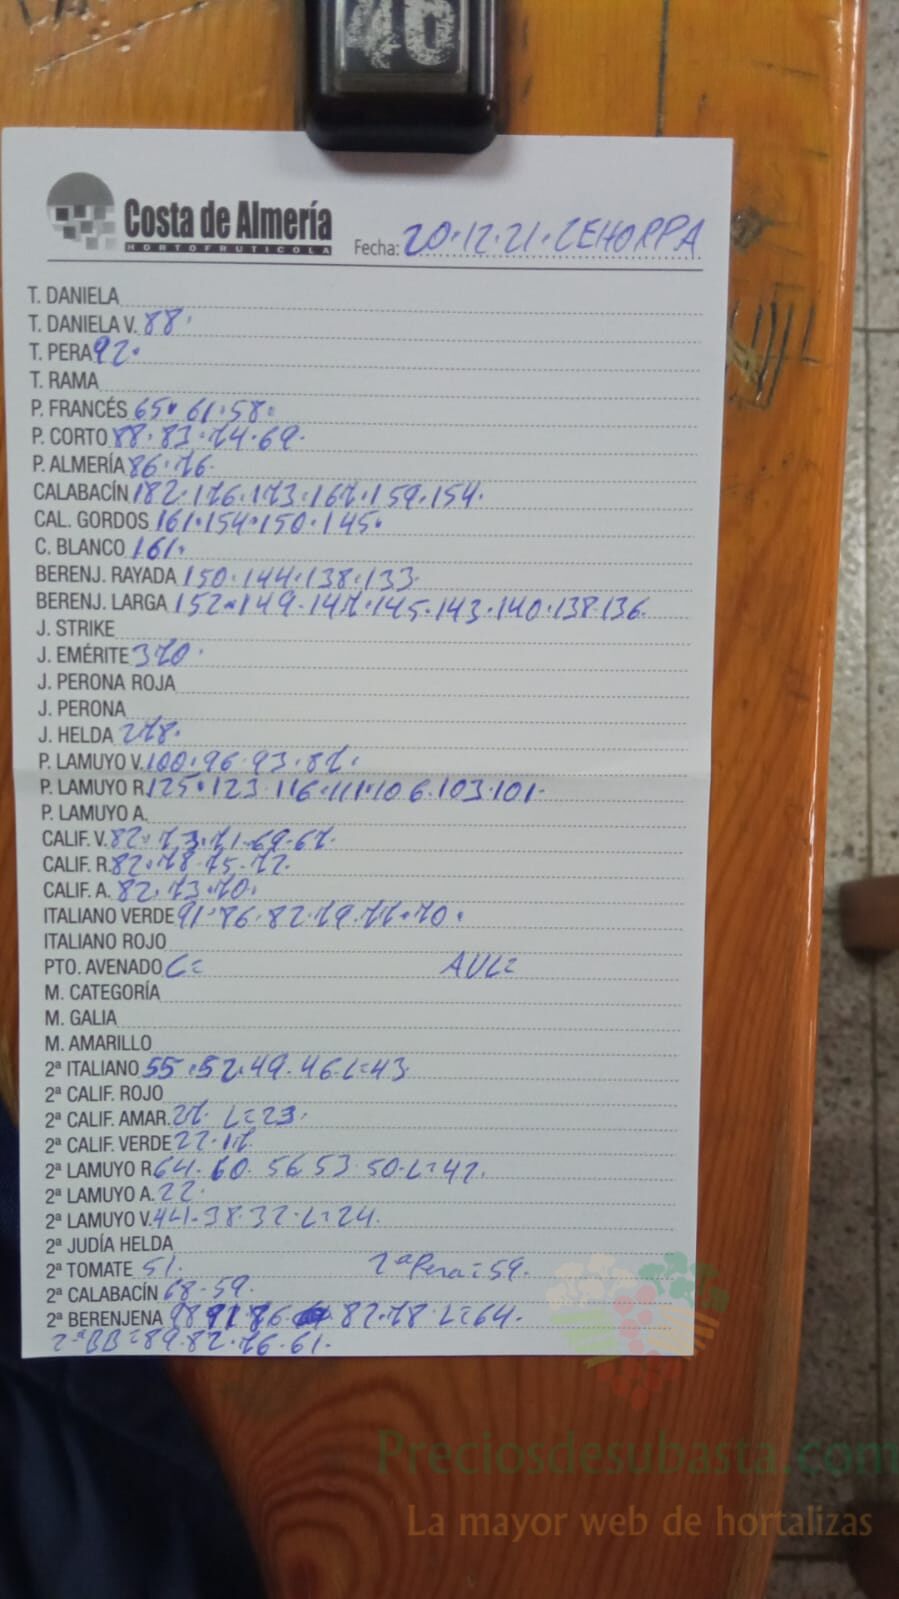 40
Costa de Almería
HORTOFRUTICOLA
Fecha: 20.12.21. ZEHORPA
T. DANIELA
T. DANIELA V. 88.
T. PERA 92.
T. RAMA
P. FRANCÉS 65. 61. 58.
P. CORTO 88. 83. 74. 69.
P. ALMERÍA 86. 76.
CALABACÍN 182. 176. 173. 167. 159. 154.
CAL. GORDOS 161. 154. 150. 145.
C. BLANCO 161.
BERENJ. RAYADA 150. 144. 138. 133
BERENJ. LARGA 152. 149. 147. 145. 143. 140. 138. 136.
J. STRIKE
J. EMÉRITE 370.
J. PERONA ROJA
J. PERONA
J. HELDA 278.
P. LAMUYO V. 100. 96. 93. 87.
P. LAMUYO R. 125. 123. 116. 111. 106. 103. 101.
P. LAMUYO A.
CALIF. V. 82. 73. 71. 69. 67.
CALIF. R. 82. 78. 75. 72.
CALIF. A. 82. 73. 70.
ITALIANO VERDE 91. 86. 82. 79. 77. 70.
ITALIANO ROJO
PTO. AVENADO L= AVL=
M. CATEGORÍA
M. GALIA
M. AMARILLO
2ª ITALIANO 55. 52. 49. 46. L=43
2ª CALIF. ROJO
2ª CALIF. AMAR. 27. L=23.
2ª CALIF. VERDE 22. 17.
2ª LAMUYO R. 64. 60. 56 53. 50. L=42.
2ª LAMUYO A. 22.
2ª LAMUYO V. 44. 38. 32. L=24.
2ª JUDÍA HELDA
2ª TOMATE 51. 2ª Pera=59.
2ª CALABACÍN 68. 59.
2ª BERENJENA 98 91 86 82. 78 L=64.
2ªBB=89. 82. 76. 61.
Preciosdesubasta.com
La mayor web de hortalizas